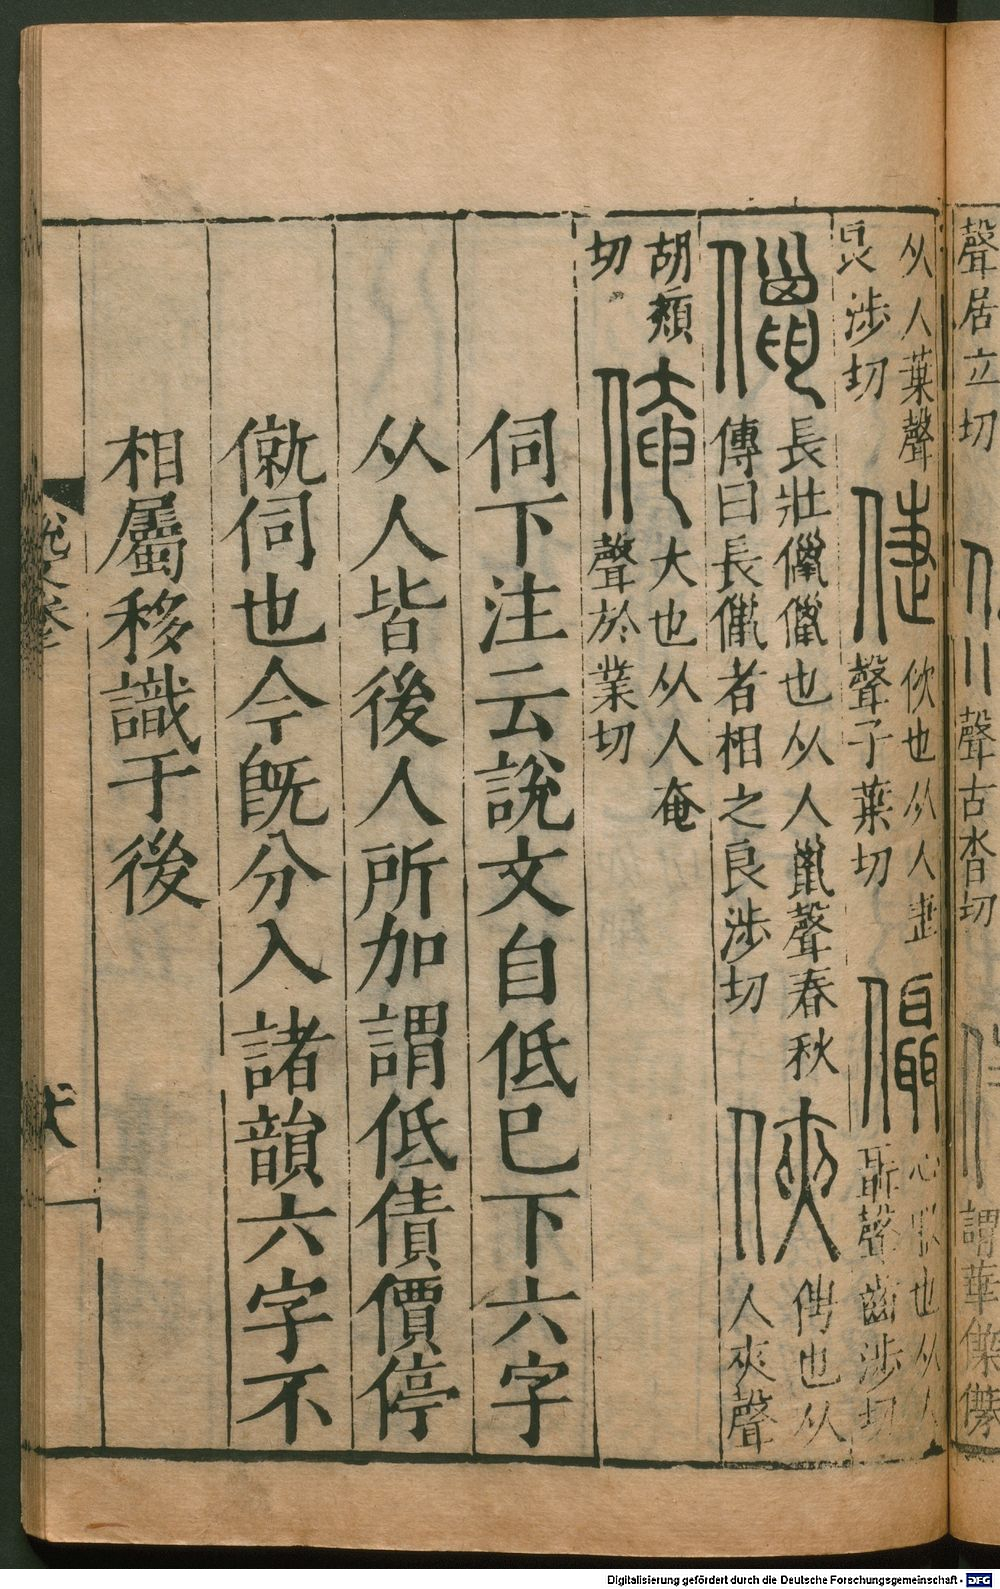 聲居立切
聲古沓切
謂華僕
从人葉聲
㑌也从人疌
心服也从人
良涉切
聲子葉切
聶聲齒涉切
儠
長壯儠儠也从人巤聲春秋
傳曰長儠者相之良涉切
俠
俜也从
人夾聲
胡頰
切
俺
大也从人奄
聲於業切
伺下注云說文自低巳下六字
从人皆後人所加謂低債價停
僦伺也今既分入諸韻六字不
相屬移識于後
說文卷
Digitalisierung gefördert durch die Deutsche Forschungsgemeinschaft - DFG